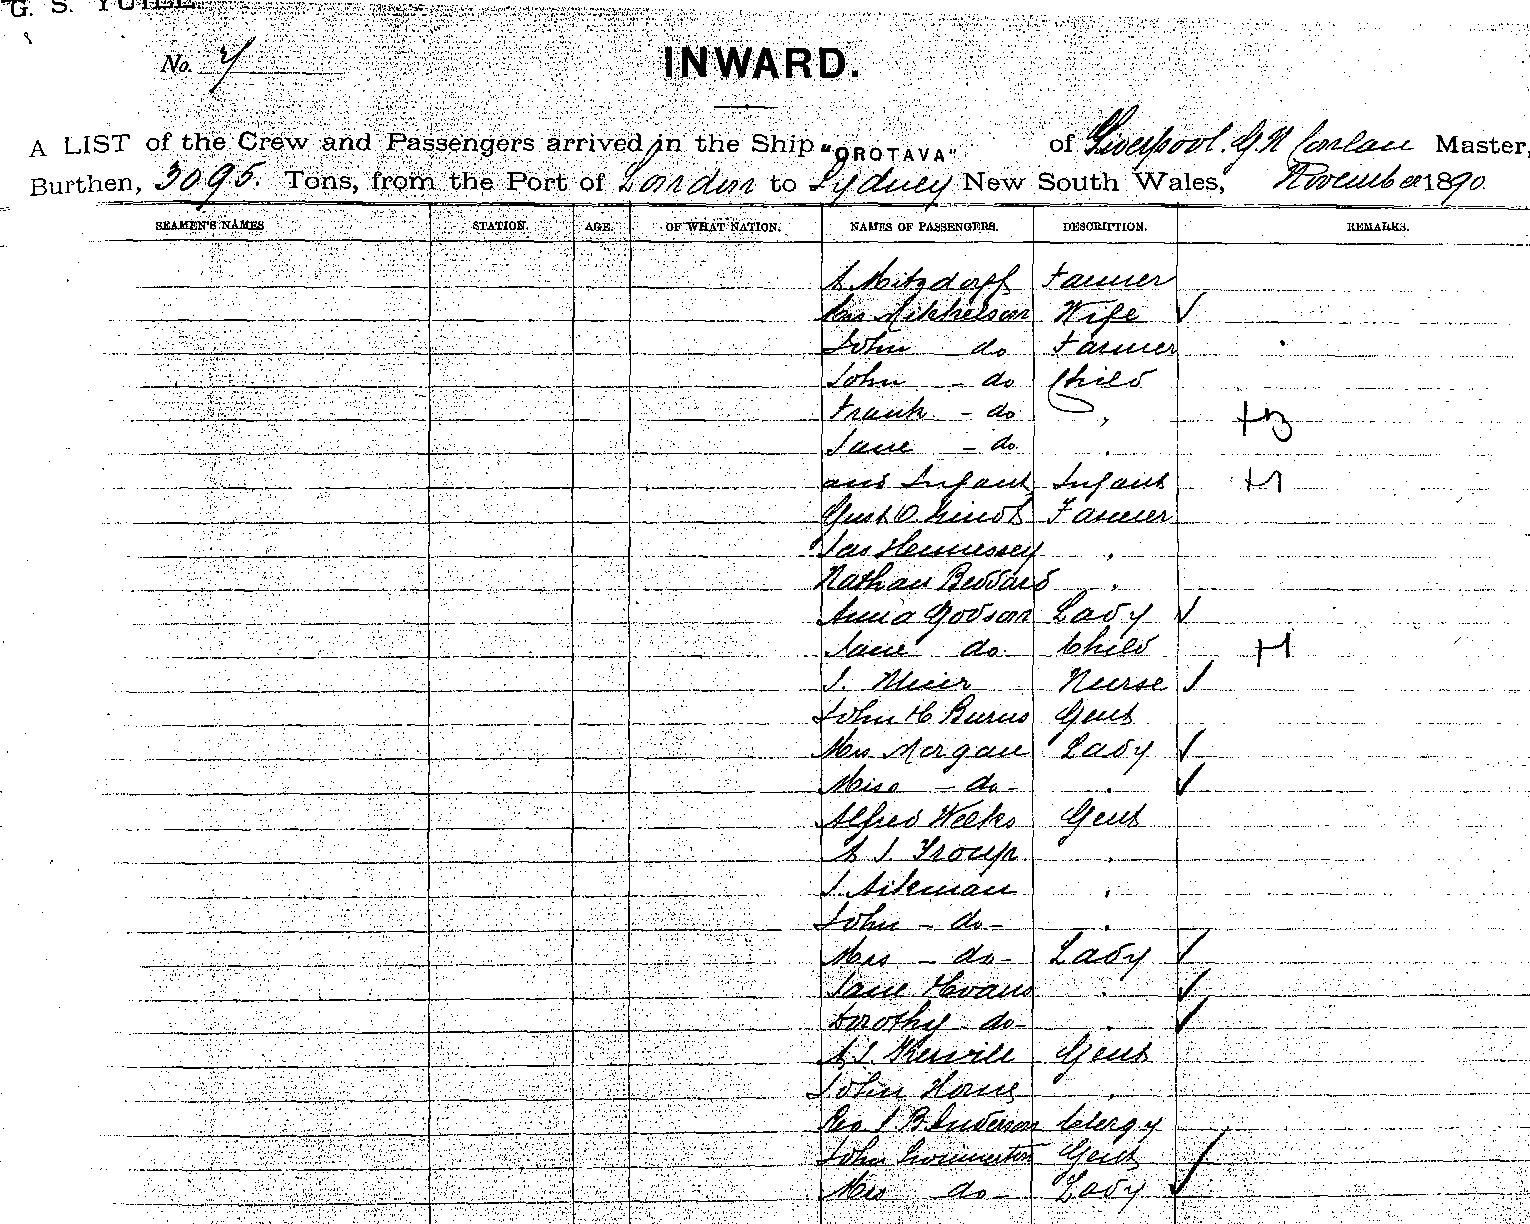 G. S. YUILL
No. 4
INWARD.
A LIST of the Crew and Passengers arrived in the Ship "OROTAVA" of Liverpool. G N Conlan Master,
Burthen, 3095. Tons, from the Port of London to Sydney New South Wales, November 1890
SEAMEN'S NAMES STATION. AGE. OF WHAT NATION. NAMES OF PASSENGERS. DESCRIPTION. REMARKS.
A Mitzdorff Farmer
Mrs Mikkelson Wife ✓
John do Farmer
John - do Child
Frank - do "
Jane - do "
and Infant Infant
Farmer
Jas Hennessey "
Nathan Beddard "
Annie Godson Lady ✓
Jane do Child
J. Muir Nurse ✓
John H Burns Gent
Mrs Morgan Lady ✓
Miss - do - " ✓
Alfred Weeks Gent
A J Troup "
J. Aikman "
John - do - "
Mrs - do - Lady ✓
Jane Evans " ✓
Dorothy do - " ✓
A J. Gent
John Horne "
Rev J B Anderson Clergy
John Swinnerton Gent ✓
Mrs do - Lady ✓